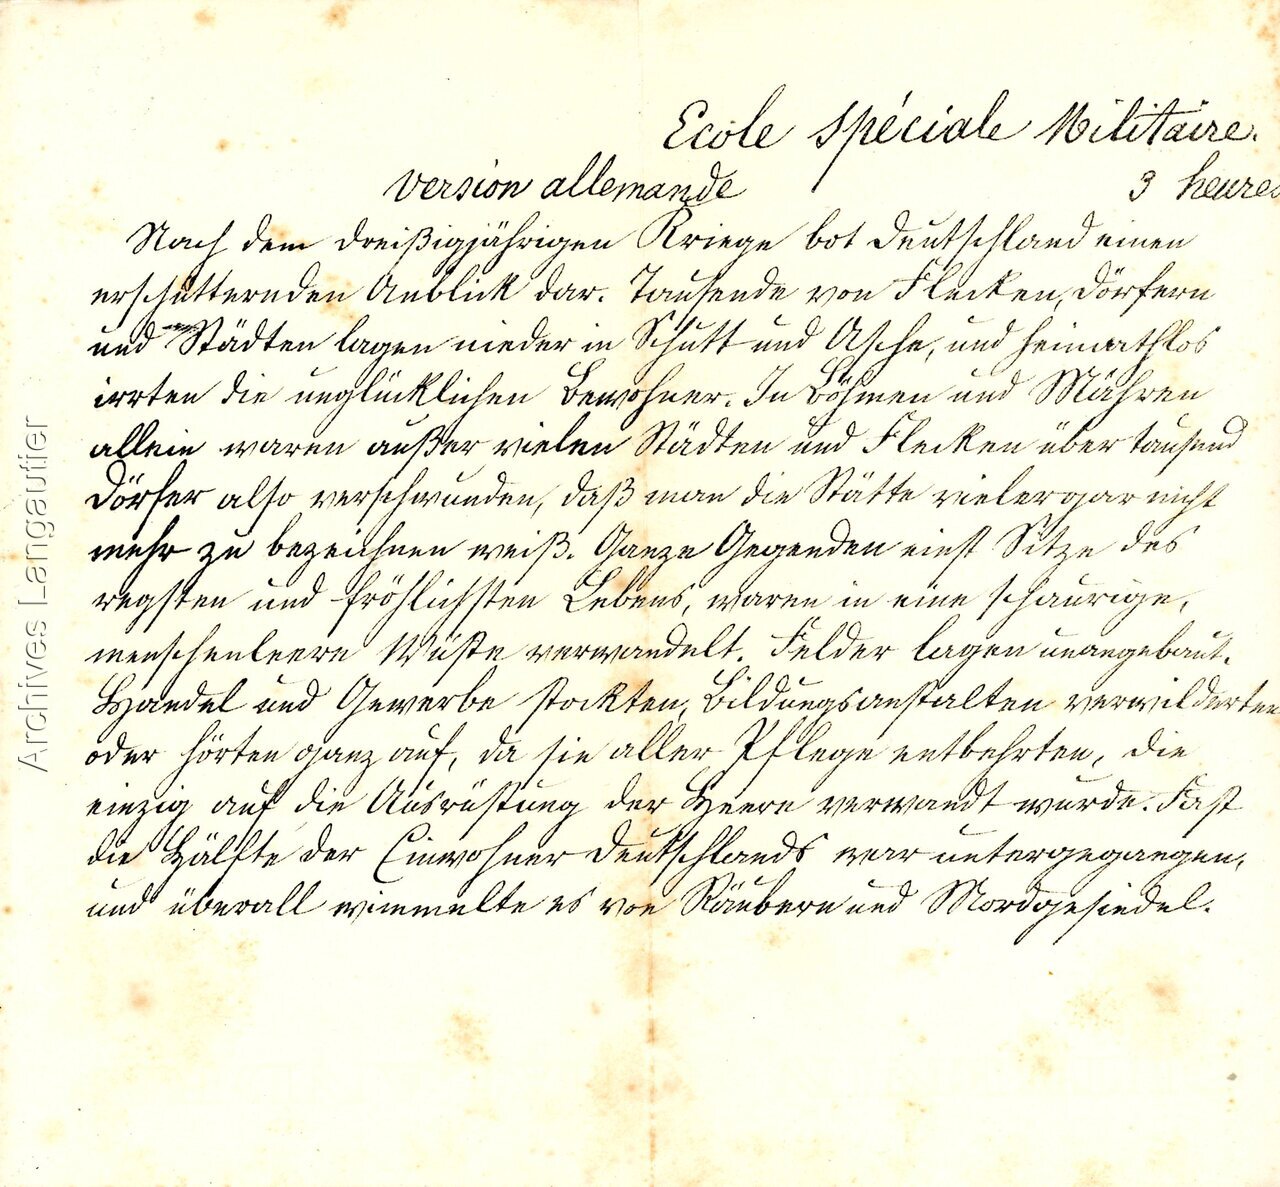 Ecole spéciale Militaire.
version allemande 3 heures
Nach dem dreißigjährigen Kriege bot Deutschland einen
erschütternden Anblick dar. Tausende von Flecken, Dörfern
und Städten lagen nieder in Schutt und Asche, und heimathlos
irrten die unglücklichen Bewohner. In Böhmen und Mähren
allein waren außer vielen Städten und Flecken über tausend
Dörfer also verschwunden, daß man die Stätte vieler gar nicht
mehr zu bezeichnen weiß. Ganze Gegenden einst Sitze des
regsten und fröhlichsten Lebens, waren in eine schaurige,
menschenleere Wüste verwandelt. Felder lagen unangebaut.
Handel und Gewerbe stockten, Bildungsanstalten verwilderten
oder hörten ganz auf, da sie aller Pflege entbehrten, die
einzig auf die Ausrüstung der Heere verwandt wurde. Fast
die Hälfte der Einwohner Deutschlands war untergegangen,
und überall wimmelte es von Räubern und Mordgesindel.
Archives Langautier